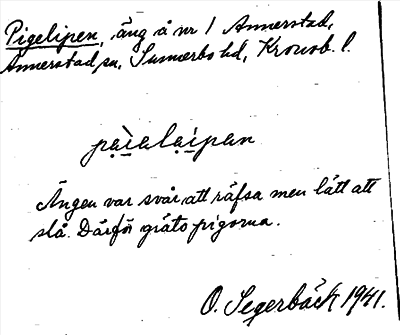 Pigelipen, äng å nr 1 Annerstad,
Annerstad sn, Sunnerbo hd, Kronob. l.
pa̤ìala̤ípan
Ängen var svår att räfsa men lätt att
slå. Därför gräto pigorna.
O. Segerbäck 1941.